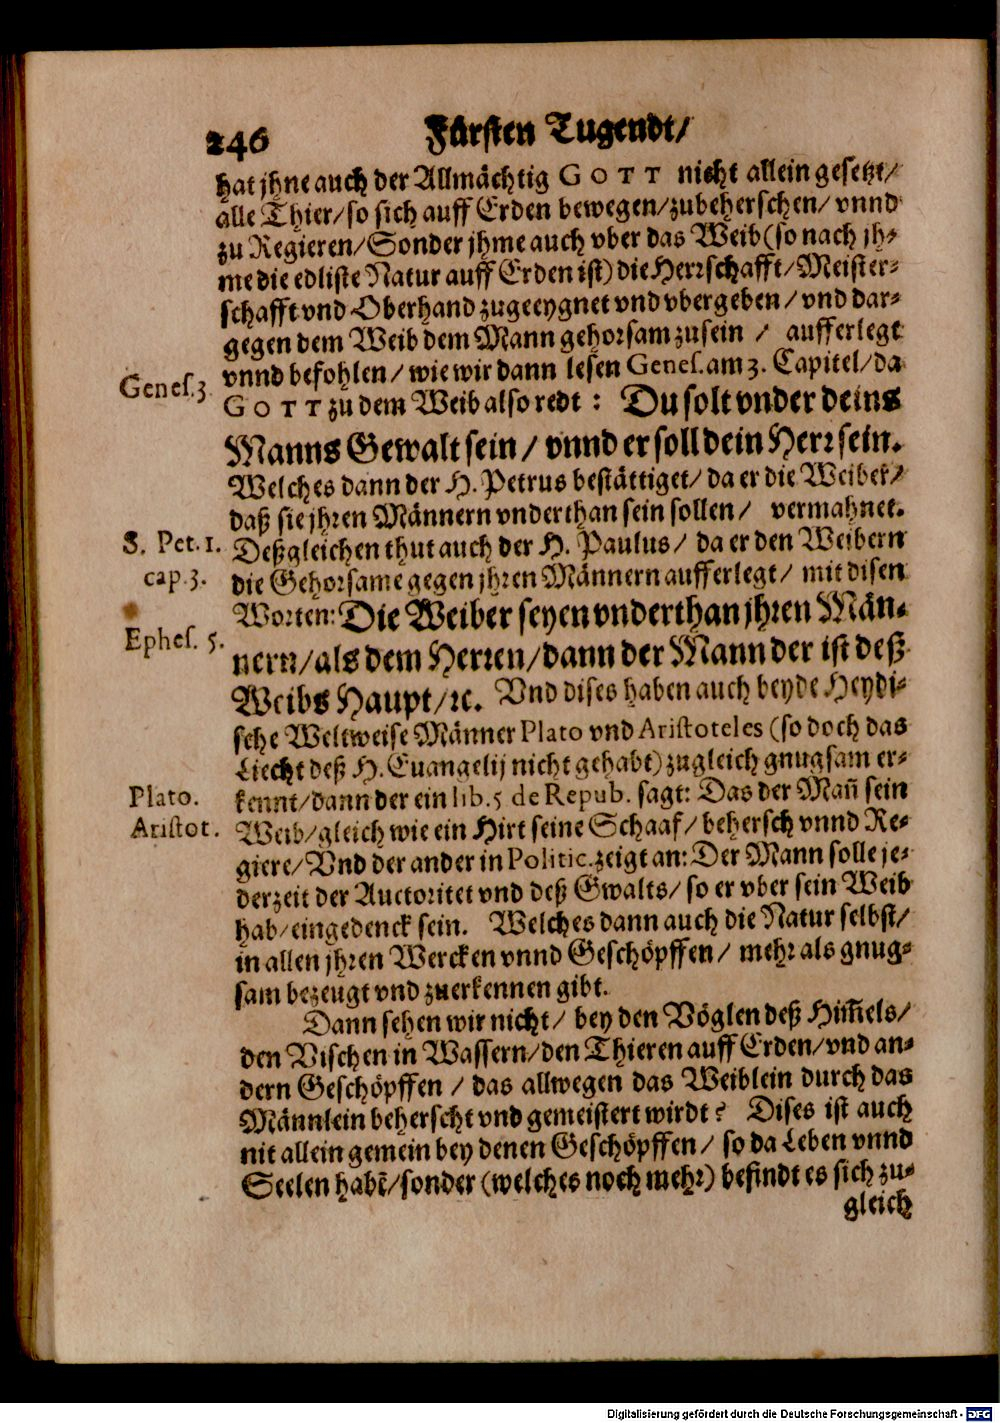 246 Fürsten Tugendt/
hat jhne auch der Allmächtig GOTT nicht allein gesetzt/
alle Thier/so sich auff Erden bewegen/zubeherschen/ vnnd
zu Regieren/Sonder jhme auch vber das Weib(so nach jh-
me die edliste Natur auff Erden ist) die Herrschafft/Meister-
schafft vnd Oberhand zugeeygnet vnd vbergeben/ vnd dar-
gegen dem Weib dem Mann gehorsam zusein / aufferlegt
vnnd befohlen/ wie wir dann lesen Genes. am 3. Capitel/ da
Genes.3
GOTT zu dem Weib also redt: Du solt vnder deins
Manns Gewalt sein/ vnnd er soll dein Herr sein.
Welches dann der H. Petrus bestättiget/ da er die Weiber/
daß sie jhren Männern vnderthan sein sollen/ vermahnet.
S. Pet. 1.
cap. 3.
Deßgleichen thut auch der H. Paulus/ da er den Weibern
die Gehorsame gegen jhren Männern aufferlegt/ mit disen
Worten: Die Weiber seyen vnderthan jhren Män-
Ephes. 5.
nern/als dem Herren/dann der Mann der ist deß
Weibs Haupt/ꝛc. Vnd dises haben auch beyde Heydi-
sche Weltweise Männer Plato vnd Aristoteles (so doch das
Liecht deß H. Euangelij nicht gehabt) zugleich gnugsam er-
Plato.
kennt/dann der ein lib. 5 de Repub. sagt: Das der Mañ sein
Aristot.
Weib/gleich wie ein Hirt seine Schaaf/ behersch vnnd Re-
giere/ Vnd der ander in Politic. zeigt an: Der Mann solle je-
derzeit der Auctoritet vnd deß Gwalts/ so er vber sein Weib
hab/eingedenck sein. Welches dann auch die Natur selbst/
in allen jhren Wercken vnnd Geschöpffen/ mehr als gnug-
sam bezeugt vnd zuerkennen gibt.
Dann sehen wir nicht/ bey den Vöglen deß Him̃els/
den Vischen in Wassern/den Thieren auff Erden/vnd an-
dern Geschöpffen / das allwegen das Weiblein durch das
Männlein beherscht vnd gemeistert wirdt? Dises ist auch
nit allein gemein bey denen Geschöpffen/ so da Leben vnnd
Seelen habẽ/sonder (welches noch mehr) befindt es sich zu-
gleich
Digitalisierung gefördert durch die Deutsche Forschungsgemeinschaft - DFG